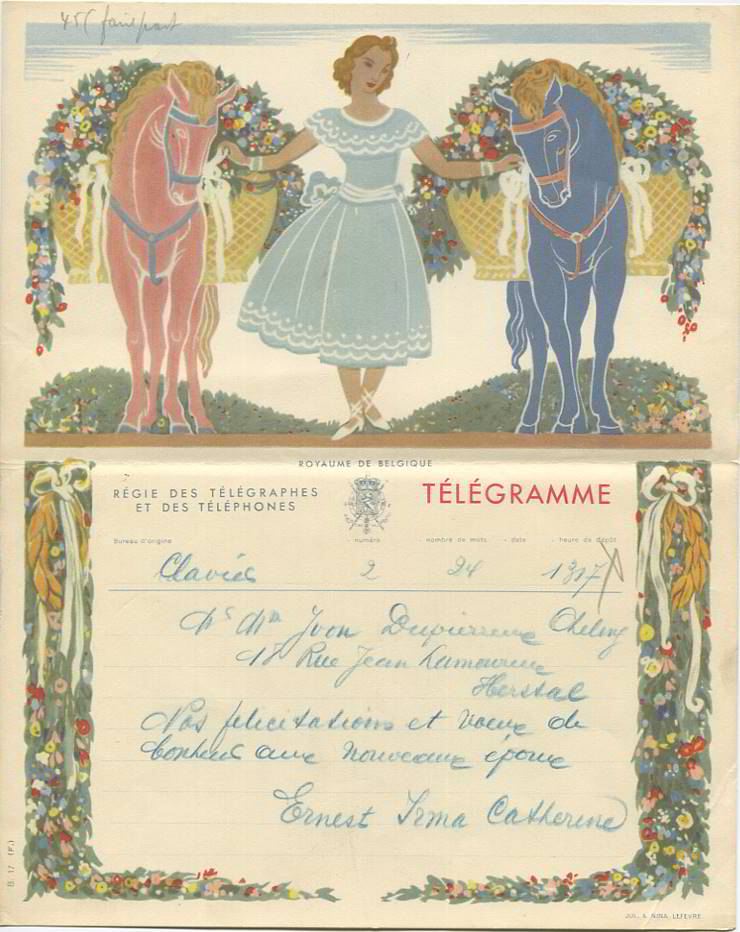 45 faire part
ROYAUME DE BELGIQUE
RÉGIE DES TÉLÉGRAPHES
ET DES TÉLÉPHONES
TÉLÉGRAMME
Bureau d'origine - numéro - nombre de mots - date - heure de dépôt
Clavier 2 24 1317
Mr Mme Yvon
18 Rue Jean Lamoureux
Herstal
Nos félicitations et voeux de
bonheur aux nouveaux époux
Ernest Irma Catherine
B. 17 (F.)
JUL. & NINA LEFEVRE